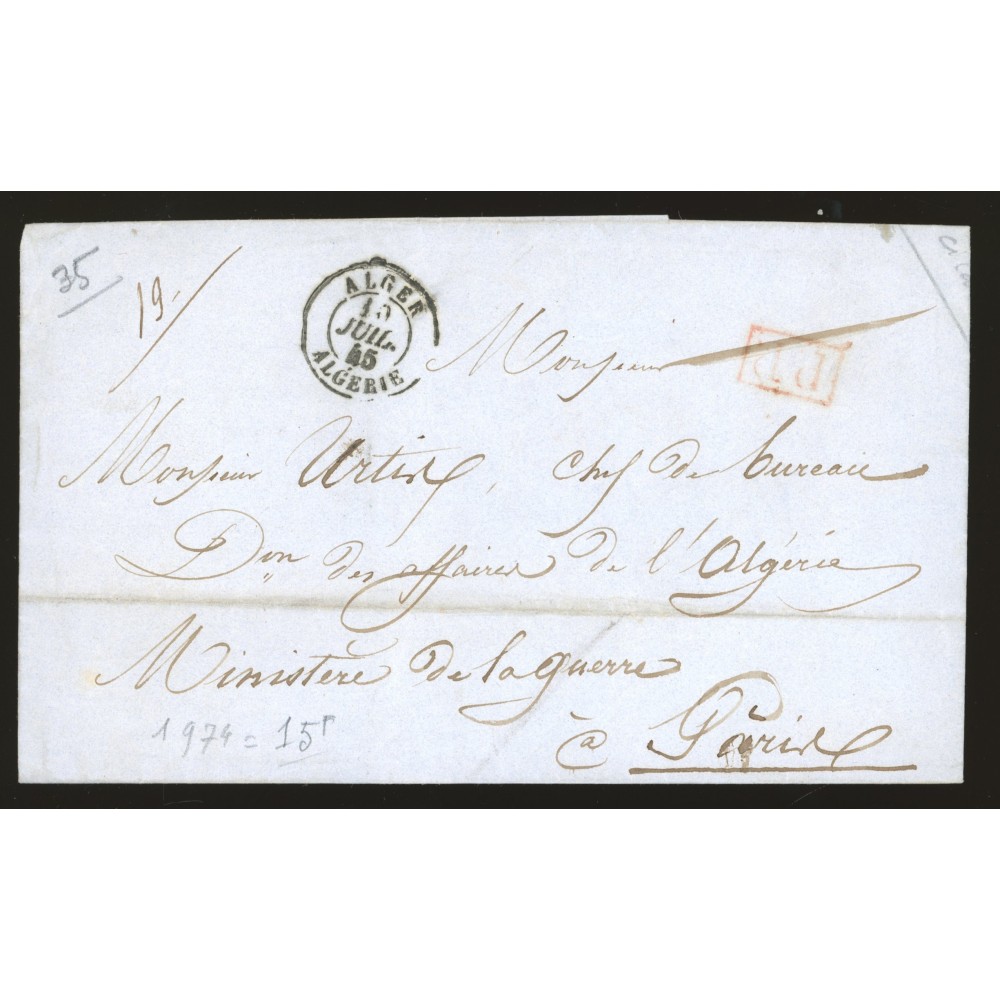 35
19
ALGER
10
JUIL.
45
ALGERIE
Monsieur
P.P.
Monsieur Urtis, chef de bureau
Don des affaires de l'Algérie
Ministère de la guerre
à Paris
1974 = 15F